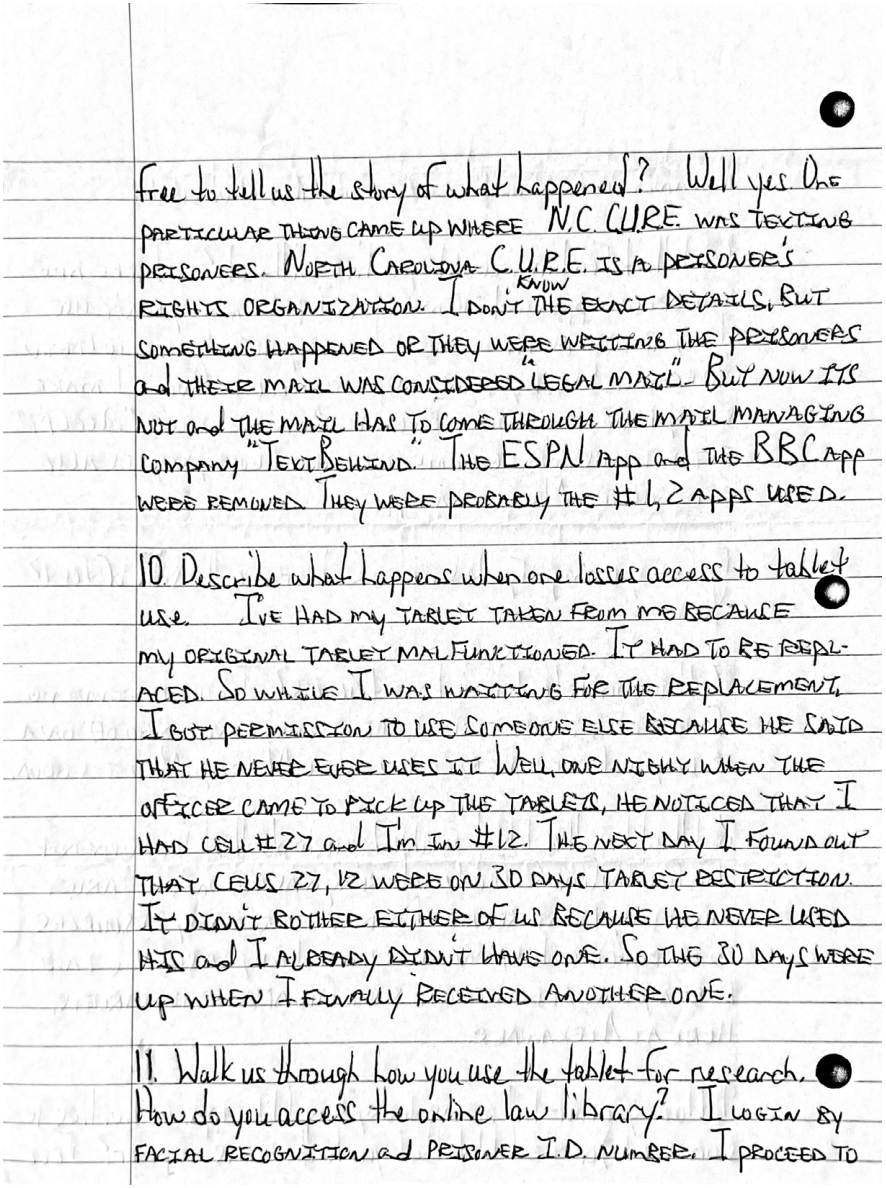 free to tell us the story of what happened? Well yes. One
particular thing came up where N.C. C.U.R.E. was texting
prisoners. North Carolina C.U.R.E. is a prisoner's
know
rights organization. I don't the exact details, but
something happened or they were writing the prisoners
and their mail was considered "legal mail". But now its
not and the mail has to come through the mail managing
company "TextBehind." The ESPN App and the BBC App
were removed. They were probably the #1,2 apps used.
10. Describe what happens when one losses access to tablet
use. I've had my tablet taken from me because
my original tablet malfunctioned. It had to be repl-
aced. So while I was waiting for the replacement,
I got permission to use someone else because he said
that he never ever uses it. Well, one night when the
officer came to pick up the tablets, he noticed that I
had cell #27 and I'm in #12. The next day I found out
that cells 27, 12 were on 30 days tablet restriction.
It didn't bother either of us because he never used
his and I already didn't have one. So the 30 days were
up when I finally received another one.
11. Walk us through how you use the tablet for research.
How do you access the online law library? I login by
facial recognition ad prisoner I.D. number. I proceed to